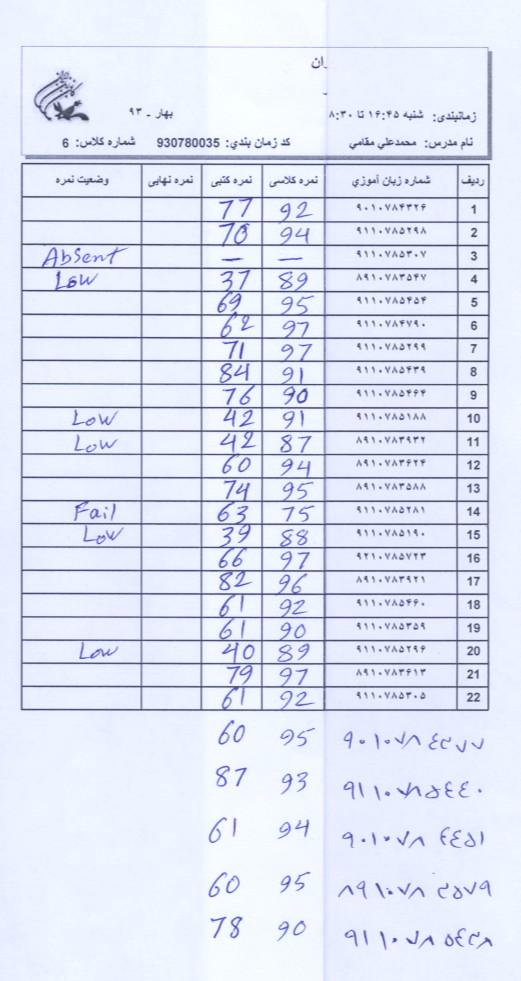 ران
زمانبندی: شنبه ۱۶:۴۵ تا ۸:۳۰ بهار - ۹۳
نام مدرس: محمدعلي مقامي کد زمان بندي: 930780035 شماره کلاس: 6
ردیف شماره زبان آموزي نمره کلاسی نمره کتبی نمره نهایی وضعیت نمره
1 ۹۰۱۰۷۸۴۳۲۶ 92 77
2 ۹۱۱۰۷۸۵۲۹۸ 94 70
3 ۹۱۱۰۷۸۵۳۰۷ — — Absent
4 ۸۹۱۰۷۸۳۵۴۷ 89 37 Low
5 ۹۱۱۰۷۸۵۴۵۴ 95 69
6 ۹۱۱۰۷۸۴۷۹۰ 97 62
7 ۹۱۱۰۷۸۵۲۹۹ 97 71
8 ۹۱۱۰۷۸۵۴۳۹ 91 84
9 ۹۱۱۰۷۸۵۴۶۴ 90 76
10 ۹۱۱۰۷۸۵۱۸۸ 91 42 Low
11 ۸۹۱۰۷۸۳۹۳۲ 87 42 Low
12 ۸۹۱۰۷۸۳۶۲۴ 94 60
13 ۸۹۱۰۷۸۳۵۸۸ 95 74
14 ۹۱۱۰۷۸۵۲۸۱ 75 63 Fail
15 ۹۱۱۰۷۸۵۱۹۰ 88 39 Low
16 ۹۲۱۰۷۸۵۷۲۳ 97 66
17 ۸۹۱۰۷۸۳۹۲۱ 96 82
18 ۹۱۱۰۷۸۵۴۶۰ 92 61
19 ۹۱۱۰۷۸۵۳۵۹ 90 61
20 ۹۱۱۰۷۸۵۲۹۶ 89 40 Low
21 ۸۹۱۰۷۸۳۶۱۳ 97 79
22 ۹۱۱۰۷۸۵۳۰۵ 92 61
95 60
۹۱۱۰۷۸۵۴۴۰ 93 87
94 61
95 60
90 78